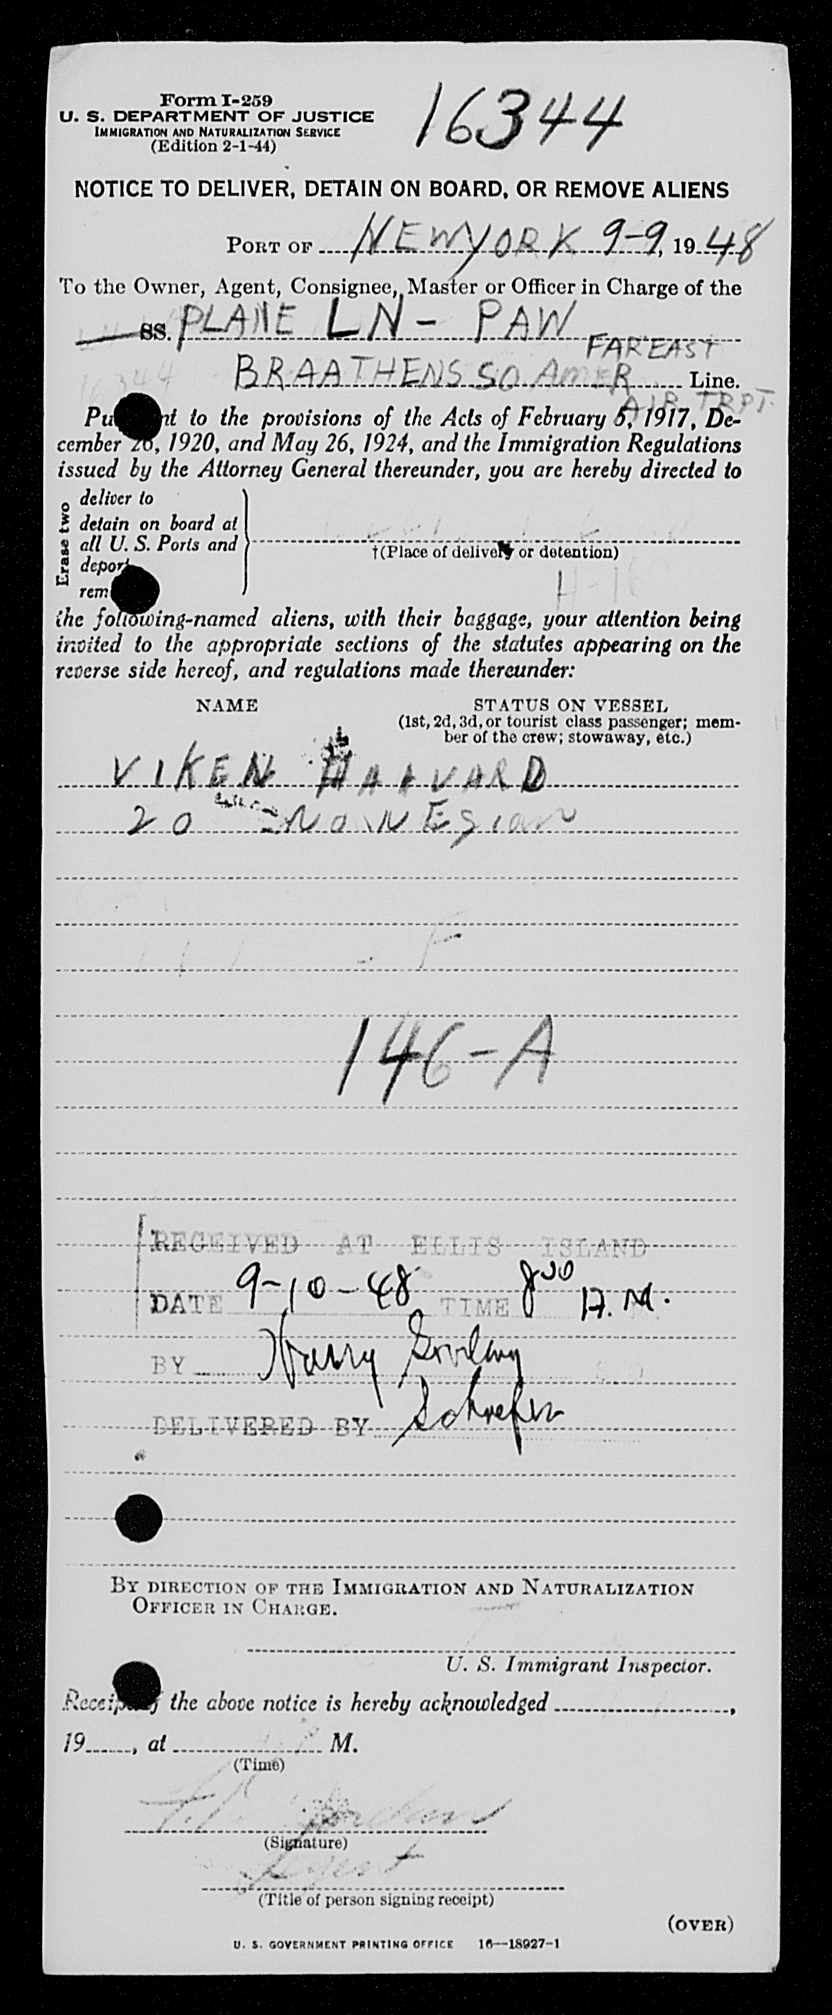 Form I-259
U. S. DEPARTMENT OF JUSTICE
IMMIGRATION AND NATURALIZATION SERVICE
(Edition 2-1-44)
16344
NOTICE TO DELIVER, DETAIN ON BOARD, OR REMOVE ALIENS
PORT OF NEW YORK 9-9, 1948
To the Owner, Agent, Consignee, Master or Officer in Charge of the
SS. PLANE LN- PAW
FAR EAST
BRAATHENS SO. AMER Line.
AIR TRPT.
16344
Pu nt to the provisions of the Acts of February 5, 1917, De-
cember 26, 1920, and May 26, 1924, and the Immigration Regulations
issued by the Attorney General thereunder, you are hereby directed to
Erase two
deliver to
detain on board at
all U. S. Ports and
depor
rem
†(Place of delivery or detention)
the following-named aliens, with their baggage, your attention being
invited to the appropriate sections of the statutes appearing on the
reverse side hereof, and regulations made thereunder:
NAME STATUS ON VESSEL
(1st, 2d, 3d, or tourist class passenger; mem-
ber of the crew; stowaway, etc.)
VIKEN HAAVARD
20
146-A
RECEIVED AT ELLIS ISLAND
DATE 9-10-48 TIME 8 00 A.M.
BY Harry
DELIVERED BY
BY DIRECTION OF THE IMMIGRATION AND NATURALIZATION
OFFICER IN CHARGE.
U. S. Immigrant Inspector.
Receip of the above notice is hereby acknowledged ,
19 , at M.
(Time)
(Signature)
Agent
(Title of person signing receipt)
(OVER)
U. S. GOVERNMENT PRINTING OFFICE 16—18927-1